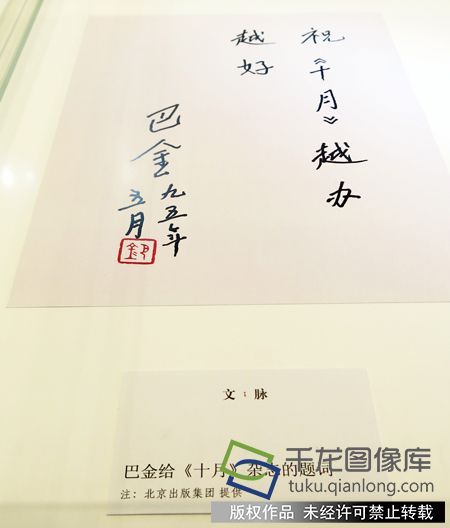 祝《十月》越办
越好
巴金
九五年
五月
文：脉
巴金给《十月》杂志的题词
注：北京出版集团 提供
千龙图像库
tuku.qianlong.com
版权作品 未经许可禁止转载